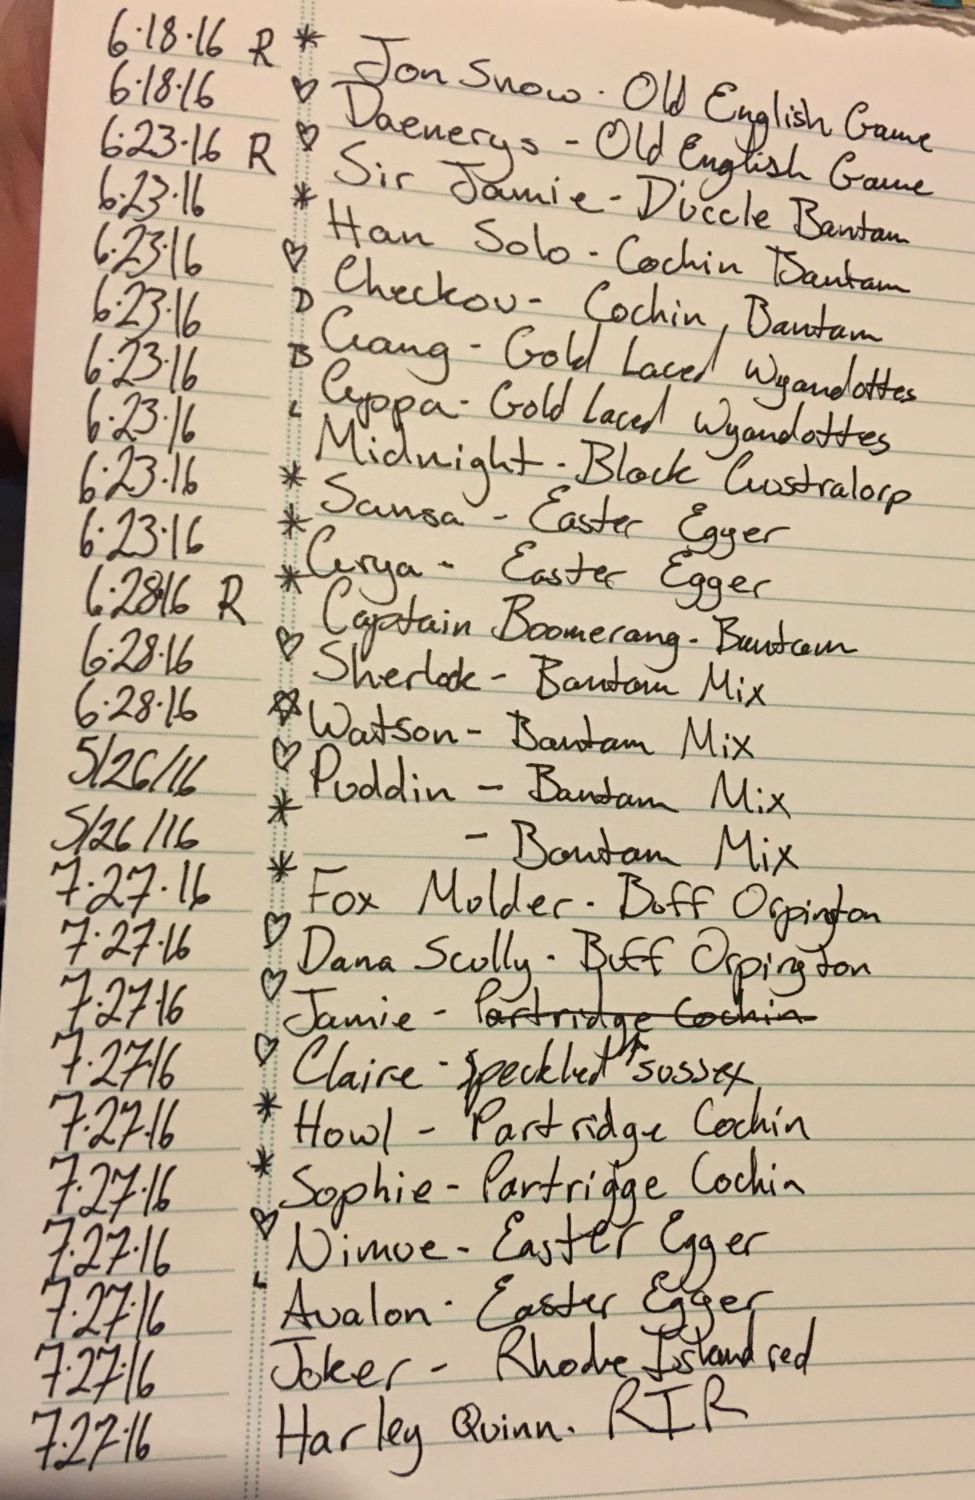 6·18·16 R * Jon Snow · Old English Game
6·18·16 ♡ Daenerys - Old English Game
6·23·16 R ♡ Sir Jamie - Duccle Bantam
6·23·16 * Han Solo - Cochin Bantam
6·23·16 ♡ Checkov - Cochin, Bantam
6·23·16 D Aang - Gold Laced Wyandottes
6·23·16 B Appa - Gold Laced Wyandottes
6·23·16 L Midnight - Black Australorp
6·23·16 * Sansa - Easter Egger
6·23·16 * Arya - Easter Egger
6·28·16 R * Captain Boomerang - Bantam
6·28·16 ♡ Sherlock - Bantam Mix
6·28·16 ☆ Watson - Bantam Mix
5/26/16 ♡ Puddin - Bantam Mix
5/26/16 * - Bantam Mix
7·27·16 * Fox Mulder · Buff Orpington
7·27·16 ♡ Dana Scully · Buff Orpington
7·27·16 ♡ Jamie - Partridge Cochin
7·27·16 ♡ Claire - Speckled ↑ sussex
7·27·16 * Howl - Partridge Cochin
7·27·16 * Sophie - Partridge Cochin
7·27·16 ♡ Nimue - Easter Egger
7·27·16 L Avalon · Easter Egger
7·27·16 Joker - Rhode Island red
7·27·16 Harley Quinn · RIR